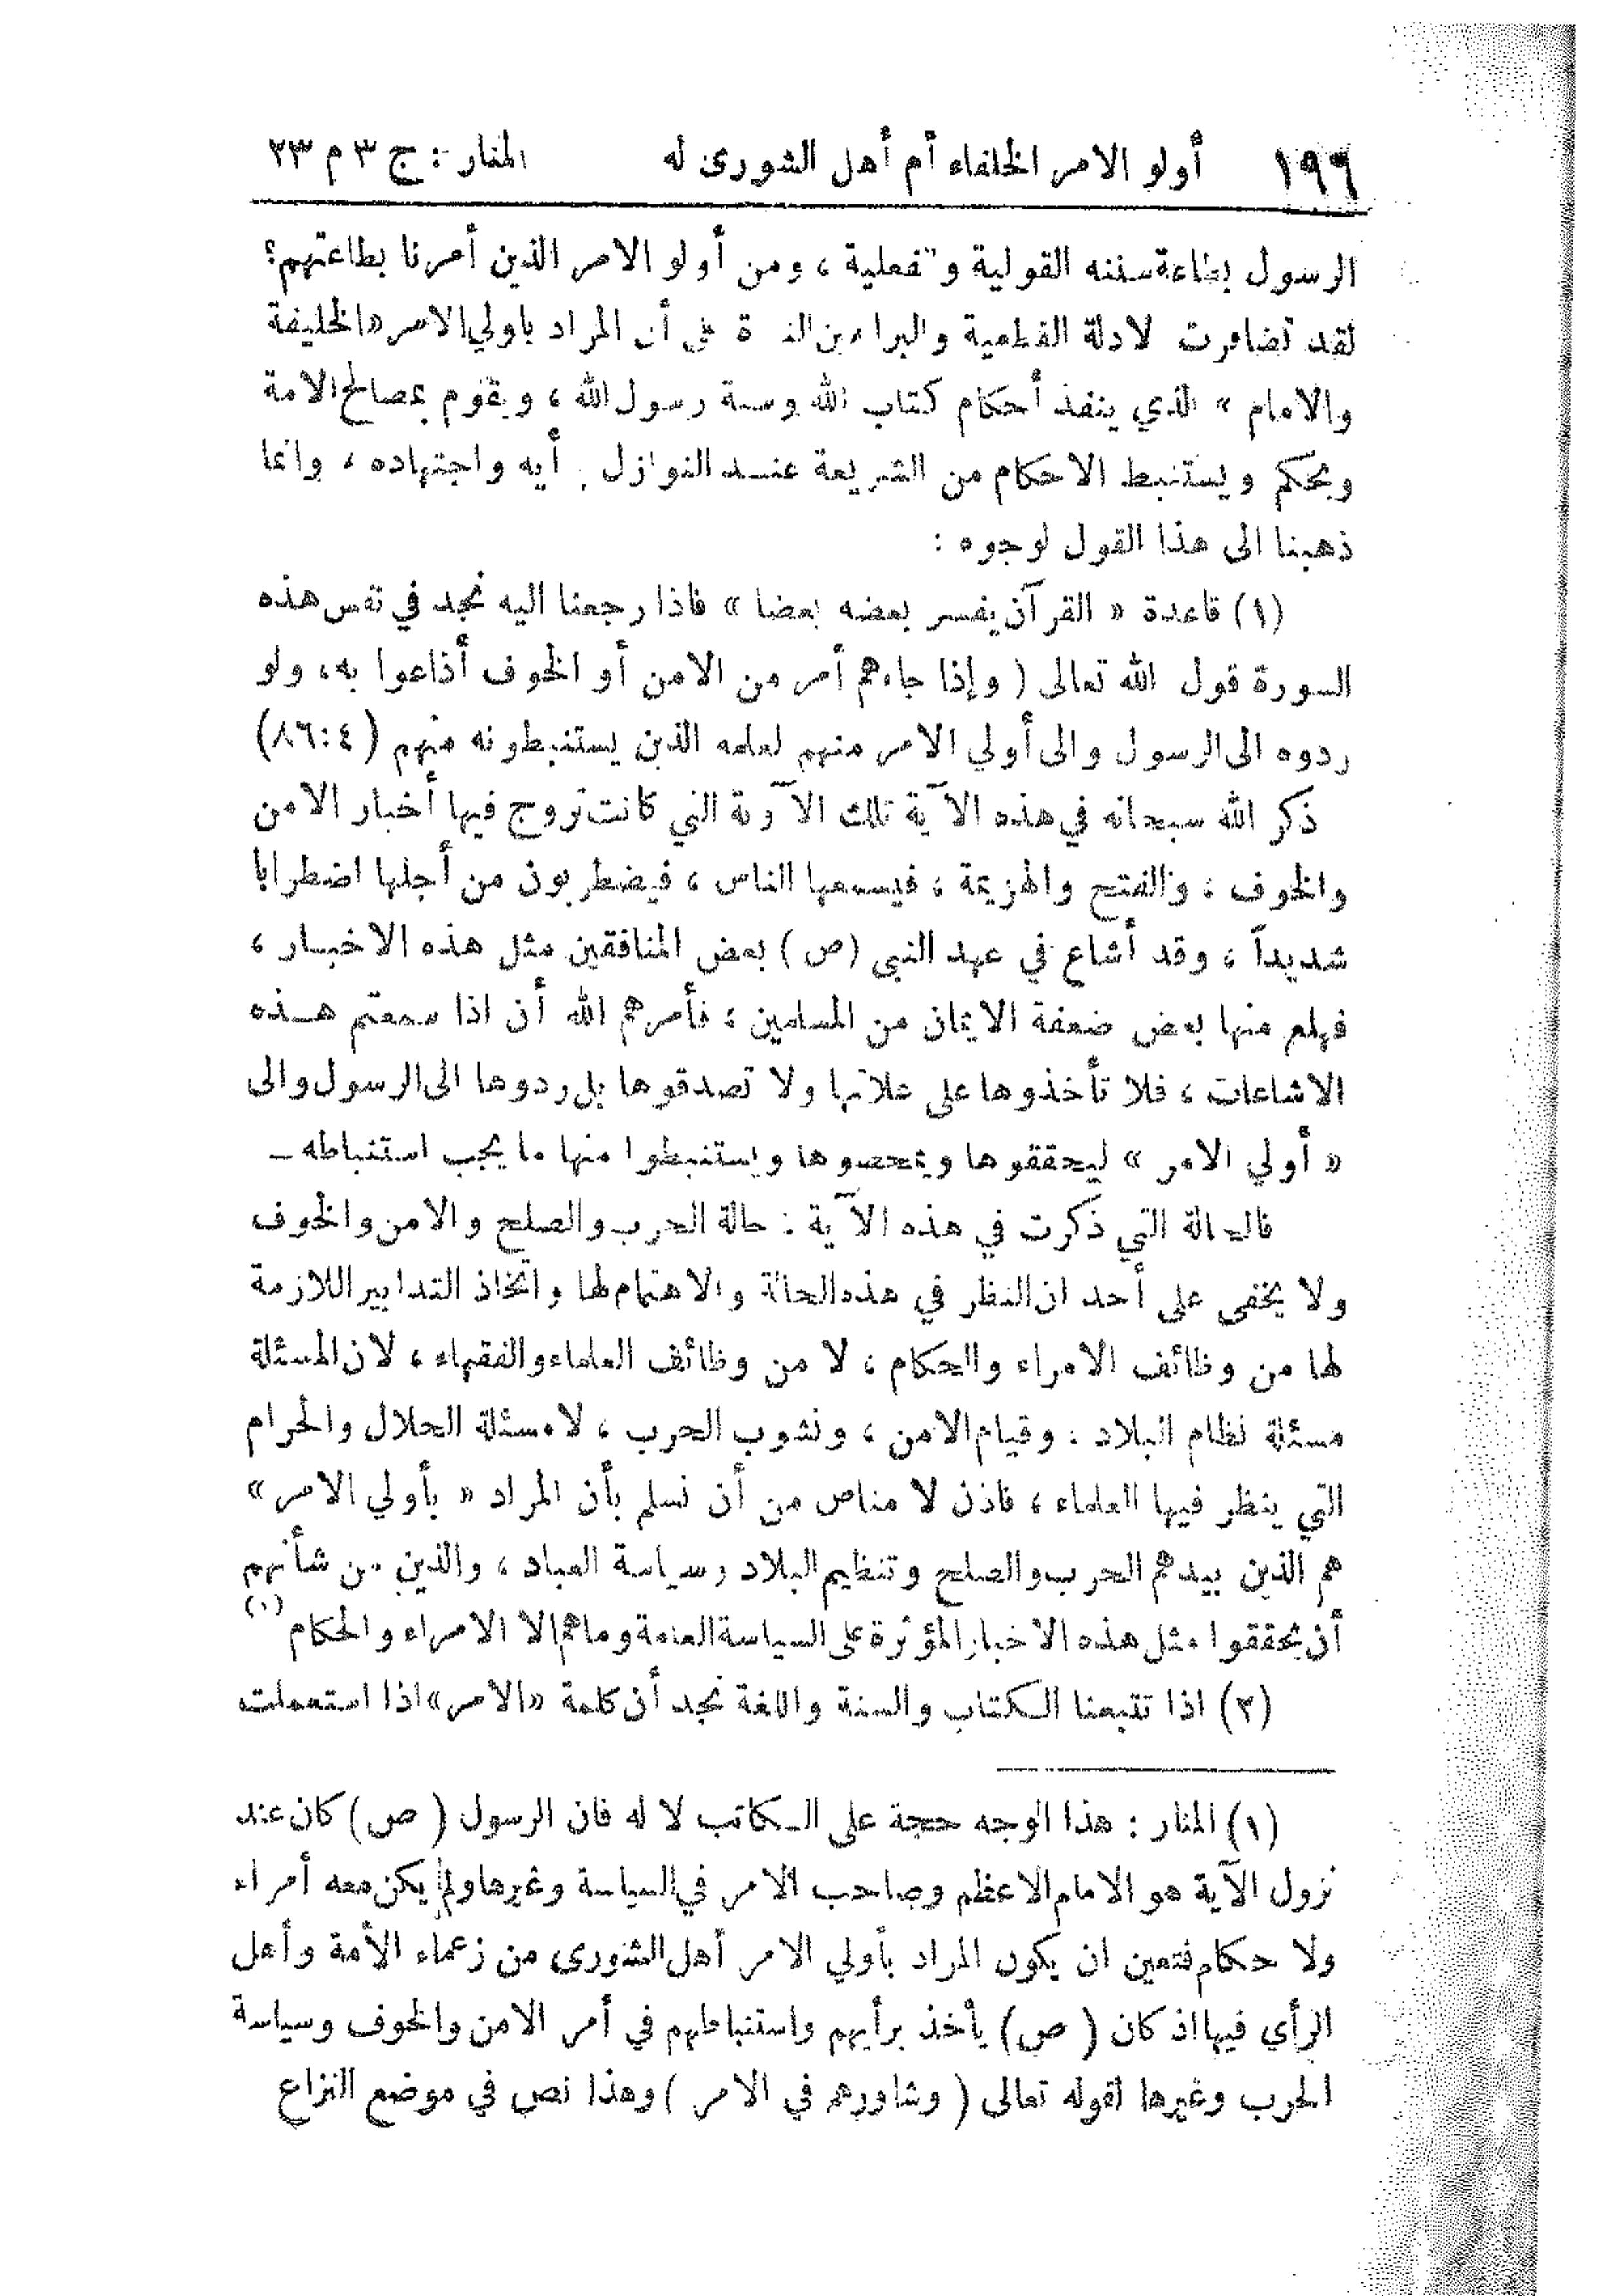 ١٩٦ أولو الامر الخلفاء أم أهل الشورى له المنار : ج ٣ م ٢٣
الرسول بطاعة سننه القولية والفعلية ، ومن أولو الامر الذين أمرنا بطاعتهم؟
لقد تضافرت لادلة القطعية والبراهين على أن المراد باولي الامر «الخليفة
والامام » الذي ينفذ أحكام كتاب الله وسنة رسول الله ، ويقوم بمصالح الامة
ويحكم ويستنبط الاحكام من الشريعة عنـد النوازل أيه واجتهاده ، وانما
ذهبنا الى هذا القول لوجوه :
(١) قاعدة « القرآن يفسر بعضه بعضا » فاذا رجعنا اليه نجد في نفس هذه
السورة قول الله تعالى ( وإذا جاءهم أمر من الامن أو الخوف أذاعوا به، ولو
ردوه الى الرسول والى أولي الامر منهم لعلمه الذين يستنبطونه منهم (٨٦:٤)
ذكر الله سبحانه في هذه الآية تلك الآونة التي كانت تروج فيها أخبار الامن
والخوف ، والفتح والهزيمة ، فيسمعها الناس ، فيضطربون من أجلها اضطرابا
شديداً ، وقد أشاع في عهد النبي (ص) بعض المنافقين مثل هذه الاخبـار ،
فهلع منها بعض ضعفة الايمان من المسلمين ، فأمرهم الله أن اذا سمعتم هـذه
الاشاعات ، فلا تأخذوها على علاتها ولا تصدقوها بل ردوها الى الرسول والى
« أولي الامر » ليحققوها ويمحصوها ويستنبطوا منها ما يجب استنباطه ـ
فالحالة التي ذكرت في هذه الآية : حالة الحرب والصلح والامن والخوف
ولا يخفى على أحد ان النظر في هذه الحالة والاهتمام لها واتخاذ التدابير اللازمة
لها من وظائف الامراء والحكام ، لا من وظائف العلماء والفقهاء ، لان المسئلة
مسئلة نظام البلاد . وقيام الامن ، ونشوب الحرب ، لا مسئلة الحلال والحرام
التي ينظر فيها العلماء ، فاذن لا مناص من أن نسلم بأن المراد « بأولي الامر »
هم الذين بيدهم الحرب والصلح وتنظيم البلاد وسياسة العباد ، والذين من شأنهم
أن يحققوا مثل هذه الاخبار المؤثرة على السياسة العامة وما هم إلا الامراء والحكام (١)
(٢) اذا تتبعنا الـكتاب والسنة واللغة نجد أن كلمة «الامر» اذا استعملت
(١) المنار : هذا الوجه حجة على الـكاتب لا له فان الرسول ( ص) كان عند
نزول الآية هو الامام الاعظم وصاحب الامر في السياسة وغيرها ولم يكن معه أمراء
ولا حكام فتعين ان يكون المراد بأولي الامر أهل الشورى من زعماء الأمة وأهل
الرأي فيها اذ كان ( ص) يأخذ برأيهم واستنباطهم في أمر الامن والخوف وسياسة
الحرب وغيرها لقوله تعالى ( وشاورهم في الامر ) وهذا نص في موضع النزاع